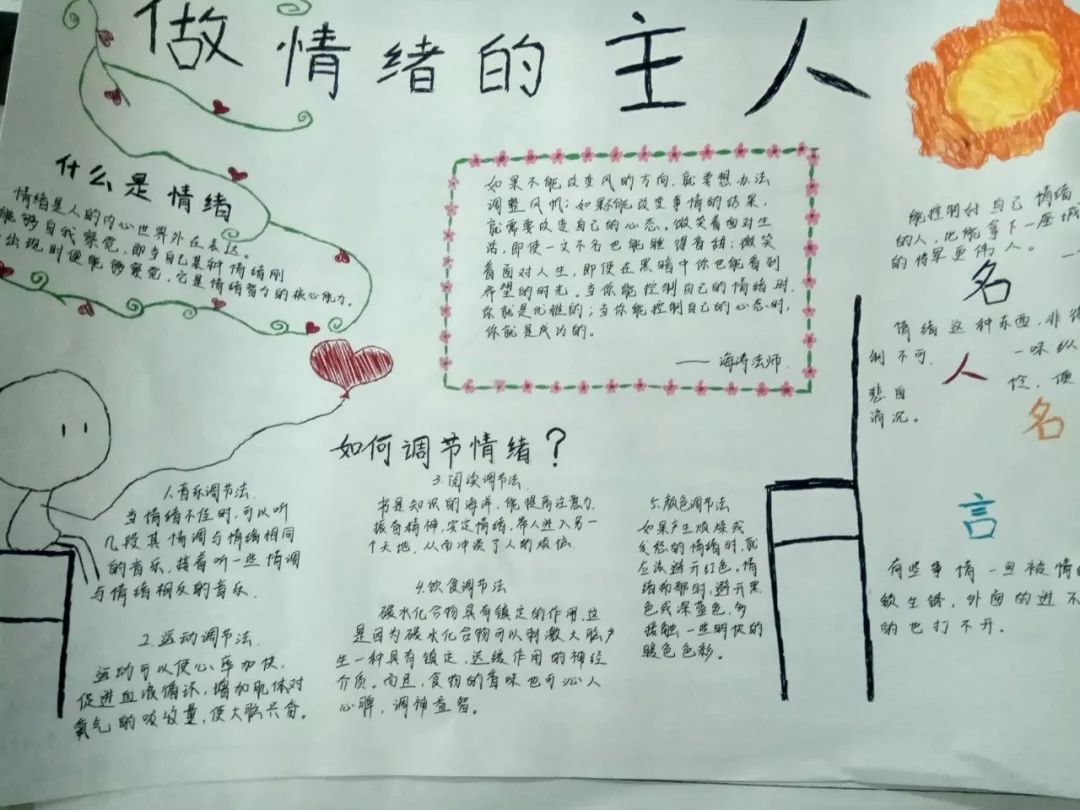 做情绪的主人
什么是情绪
情绪是人的内心世界外在表达。
能够自我察觉,即当自己某种情绪刚
出现时便能够察觉,它是情绪智力的核心能力。
如果不能改变风的方向,就要想办法
调整风帆;如果不能改变事情的结果,
就需要改变自己的心态。微笑着面对生
活,即使一文不名也能睡得香甜;微笑
着面对人生,即使在黑暗中你也能看到
希望的时光。当你能控制自己的情绪时,
你就是优雅的;当你能控制自己的心态时,
你就是成功的。
——海涛法师.
如何调节情绪?
1.音乐调节法.
当情绪不佳时,可以听
几段其情调与情绪相同
的音乐,接着听一些情调
与情绪相反的音乐.
2.运动调节法.
运动可以使心率加快,
促进血液循环,增加肌体对
氧气的吸收量,使大脑兴奋。
3.阅读调节法.
书是知识的海洋,能提高注意力,
振奋精神,安定情绪,带人进入另一
个天地,从而冲淡了人的烦恼.
4.饮食调节法
碳水化合物具有镇定的作用,这
是因为碳水化合物可以刺激大脑产
生一种具有镇定、迟缓作用的神经
介质。而且,食物的香味也可沁人
心脾,调神益智。
5.颜色调节法
如果产生烦燥或
忿怒的情绪时,就
应该避开红色。情
绪抑郁时,避开黑
色或深蓝色,多
接触一些明快的
暖色色彩。
名人名言
能控制好自己情绪
的人,比能拿下一座城
的将军更伟人。
情绪这种东西,非得
制不可.
一味纵
性,便
悲自
消沉。
有些事情一旦被情绪
锁生锈,外面的进不
的也打不开.